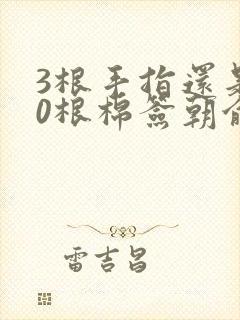 3根手指還是
0根棉簽朝俞
雷吉昌